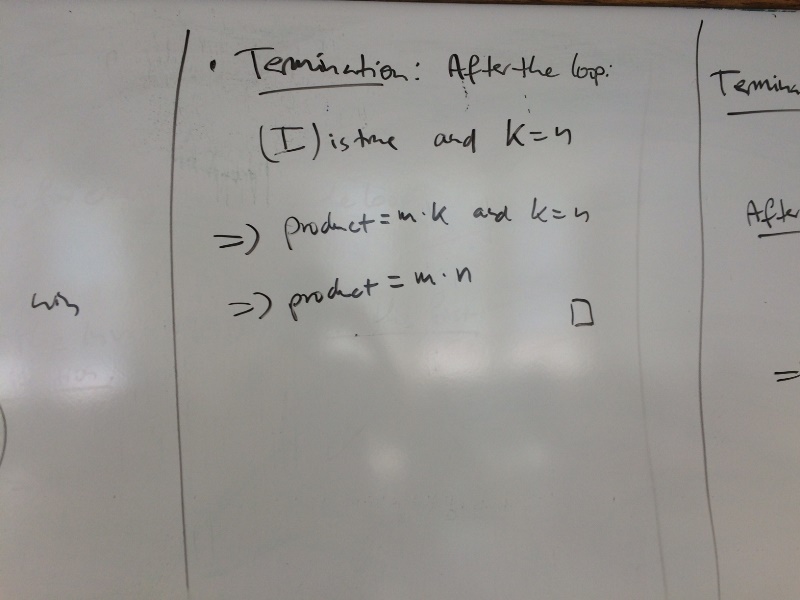 • Termination: After the loop:
(I) is true and k=n
=> product = m·k and k=n
=> product = m·n □
Termina
After
=